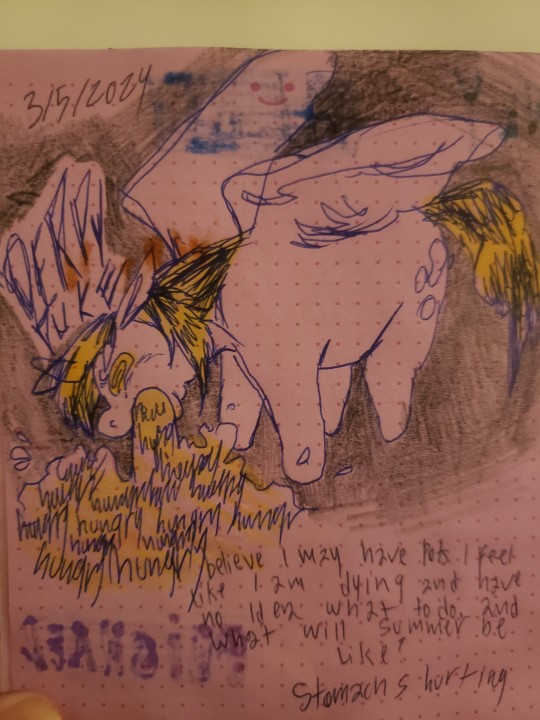 3/5/2024
DERP
PUKE
hungry
hungry
hungry hungry hungry
hungry hungry hungry hungry
hungry hungry
hungry hungry
believe I may have Pots I feel
like I am dying and have
no idea what to do. and
what will summer be
like?
Stomach s hurting